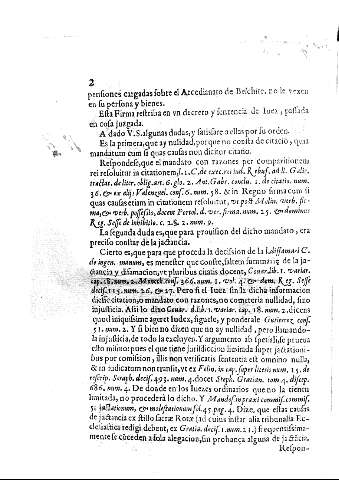 2
pensiones cargadas sobre el Arcedianato de Belchite, no le vexen
en su persona y bienes.
Esta Firma restriba en vn decreto y sentencia de Iuez, passada
en cosa juzgada.
A dado V.S. algunas dudas, y satisfare a ellas por su orden.
Es la primera, que ay nulidad, porque no consta de citacio, quia
mandatum cum si quas causas non dicitur citatio.
Respondese, que el mandato con razones per compartitionem
rei resoluitur in citationem, l. 1. C. de exec. rei iud. Rebuf. ad ll. Galie,
tractat. de liter. oblig. art. 6. glo. 2. Ant. Gabr. conclu. 1. de citatio. num.
36. & ex alijs Valenzuel. cons. 6. num. 58. & in Regno firma cum si
quas causas etiam in citationem resoluitur, vt post Molin. verb. fir-
ma, & verb. possessio, docent Portol. d. ver. firma, num. 25. & dominus
Reg. Sesse de inhibitio. c. 2. §. 2. num. 9.
La segunda duda es, que para prouision del dicho mandato, era
preciso constar de la jactancia.
Cierto es, que para que proceda la decision de la l. diffamari C.
de ingen. manum. es menester que conste, saltem summarie de la ja-
ctancia y difamacion, vt pluribus citatis docent, Couar. lib. 1. variar.
cap. 18. num. 2. Menoch. cons. 366. num. 1. vol. 4. & dom. Reg. Sesse
decis. 115. num. 26. & 27. Pero si el Iuez sin la dicha informacion
dicho citacion, o mandato con razones, no cometeria nulidad, sino
injusticia. Assi lo dixo Couar. d. lib. 1. variar. cap. 18. num. 2. dicens
quod iniquissime ageret Iudex, siguele, y ponderale Gutierrez, cons.
51. num. 2. Y si bien no dizen que no ay nulidad, pero llamando-
la injusticia, de todo la excluyen. Y argumento ab speciali se prueua
esto mismo: pues el que tiene jurisdiccion limitada super jactationi-
bus por comission, illis non verificatis sententia est omnino nulla,
& in iudicatum non transit, vt ex Felin. in cap. super literis num. 15. de
rescrip. Seraph. decis. 493. num. 4. docet Steph. Gratian. tom. 4. discep.
686. num. 4. De donde en los Iuezes ordinarios que no la tienen
limitada, no procederà lo dicho. Y Mandos. in praxi commis. commis.
5. jactationum, & molestationum fol. 45. pag. 4. Dize, que estas causas
de jactancia ex stillo sacræ Rotæ (ad cuius instar alia tribunalia Ec-
clesiastica redigi debent, ex Gratia. decis. 1. num. 21.) frequentissima-
mente se conceden a sola alegacion, sin probança alguna de jactãcia,
Respon-